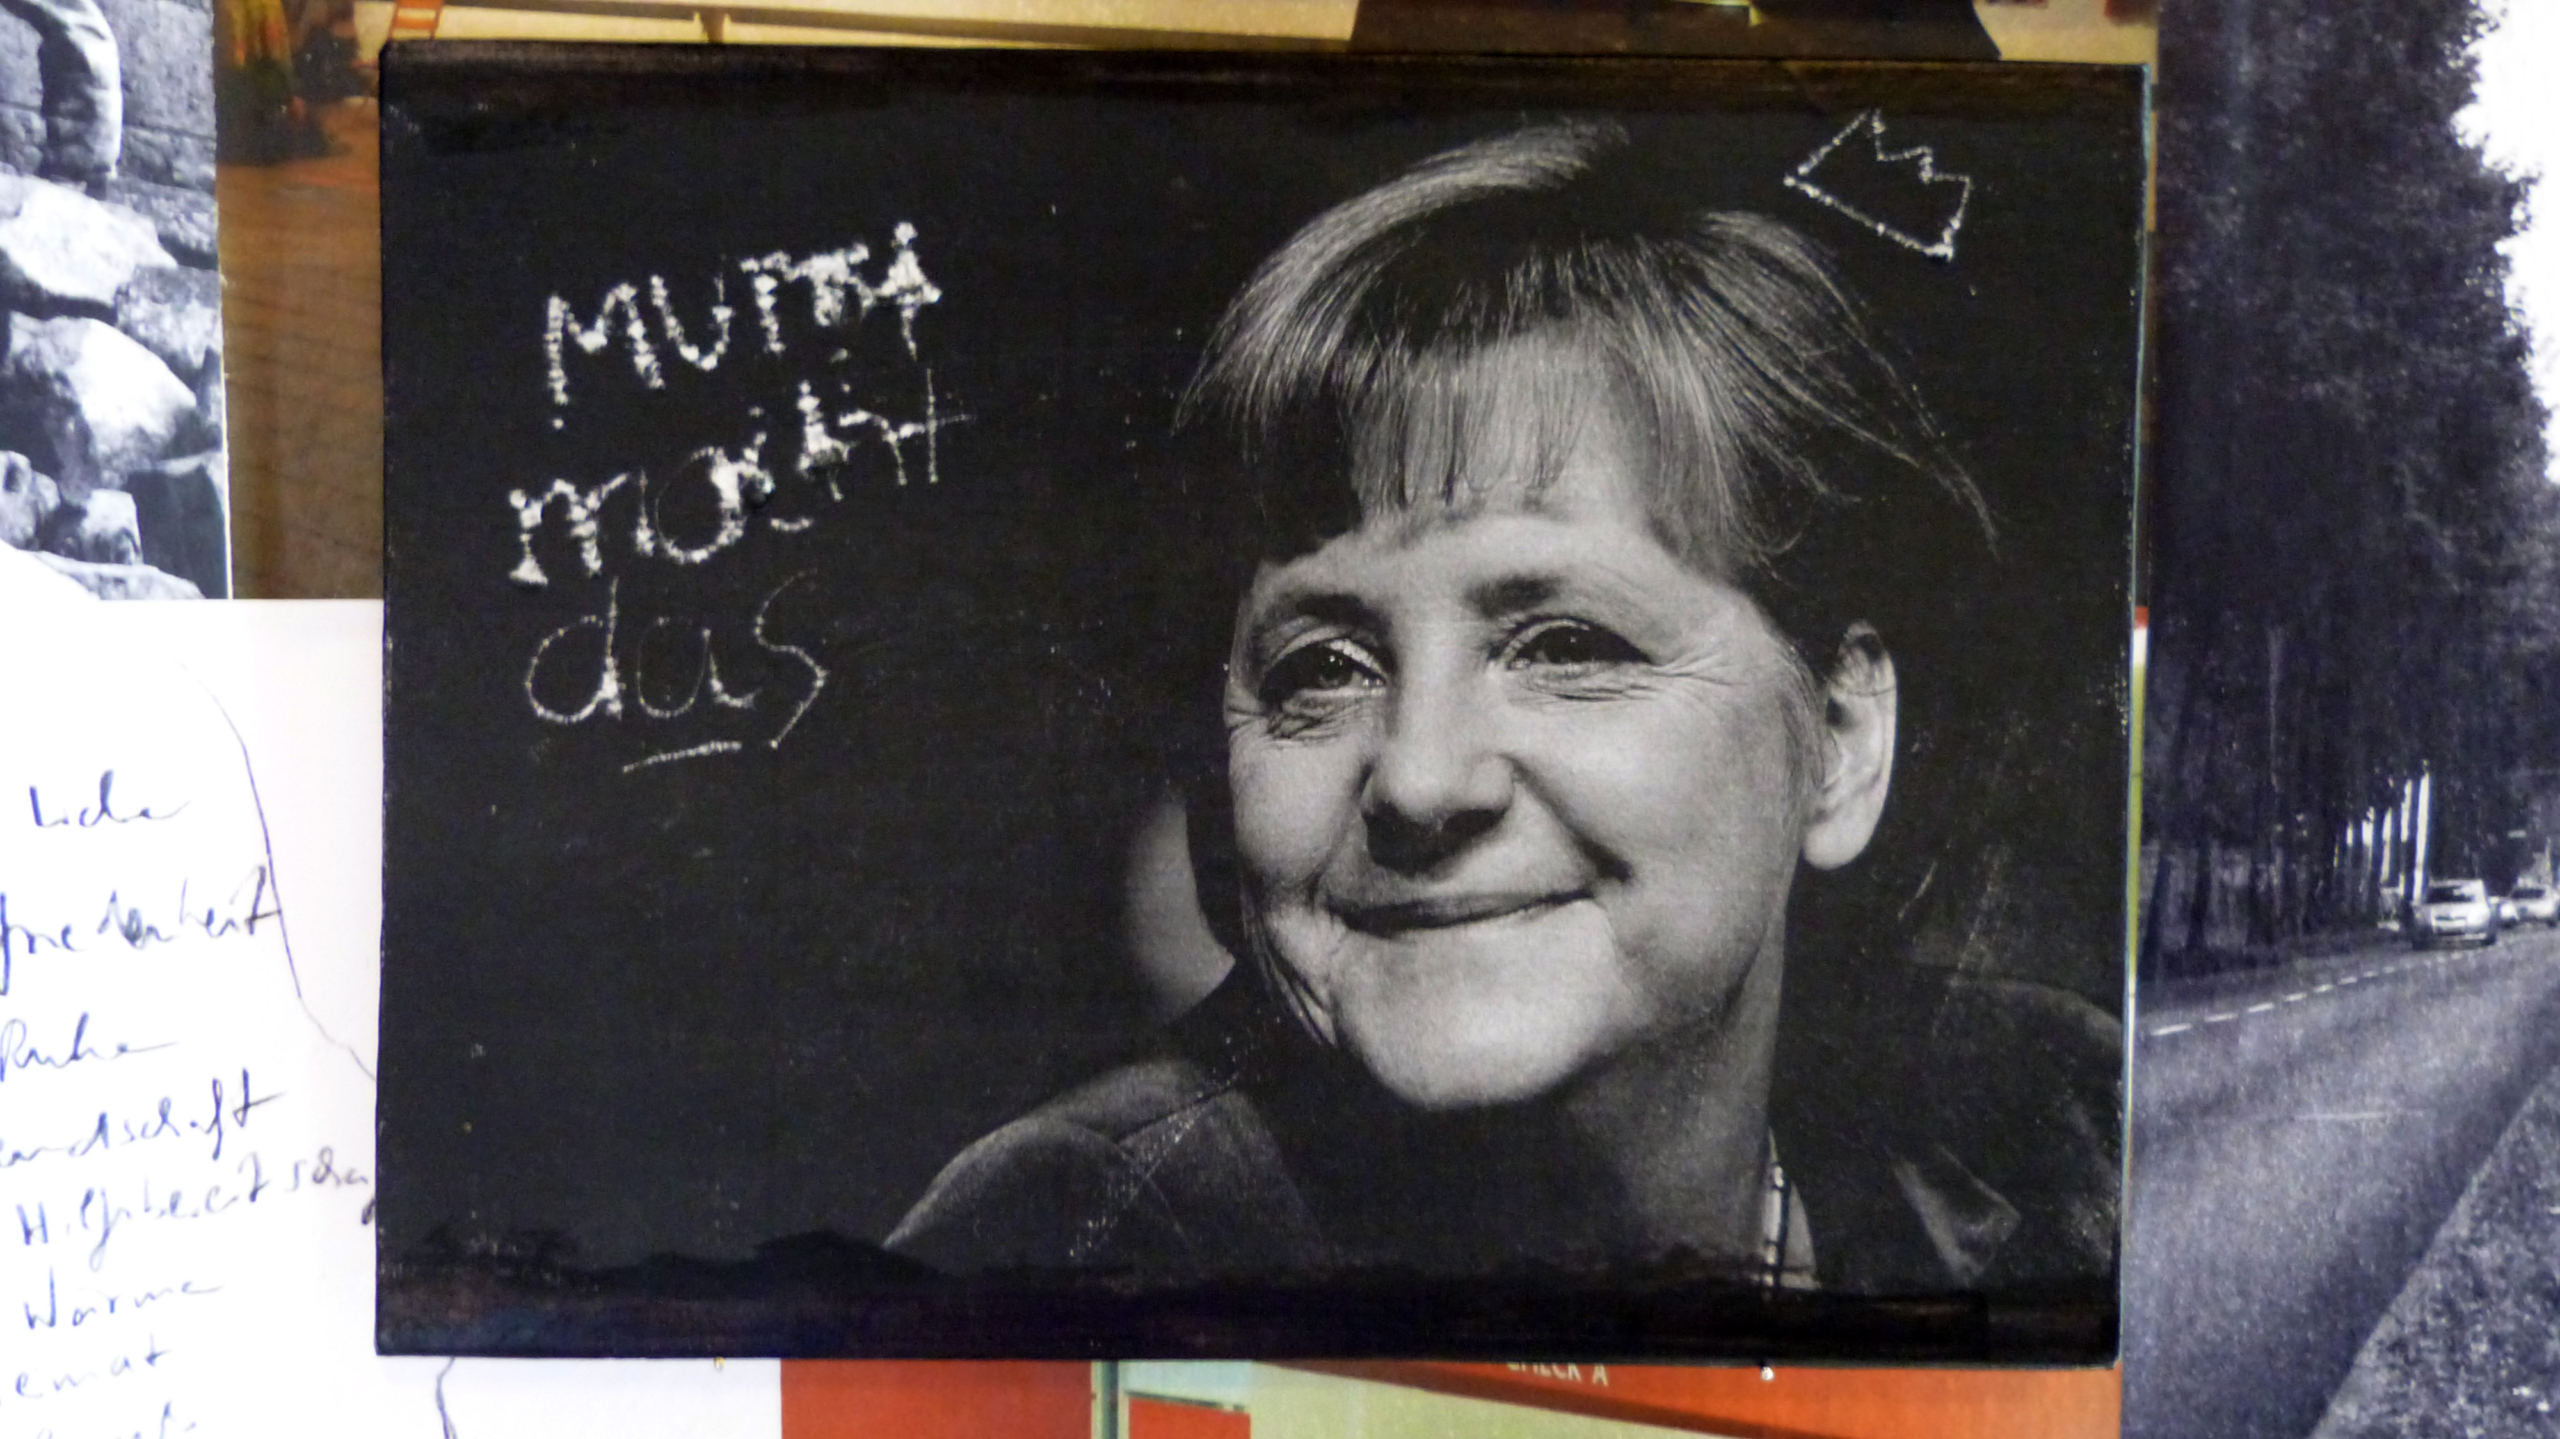 MUTTI
macht
das
Liebe
friedenheit
Ruhe
andschaft
Hilfsbereitschaf
Wärme
eimat
CHECK A